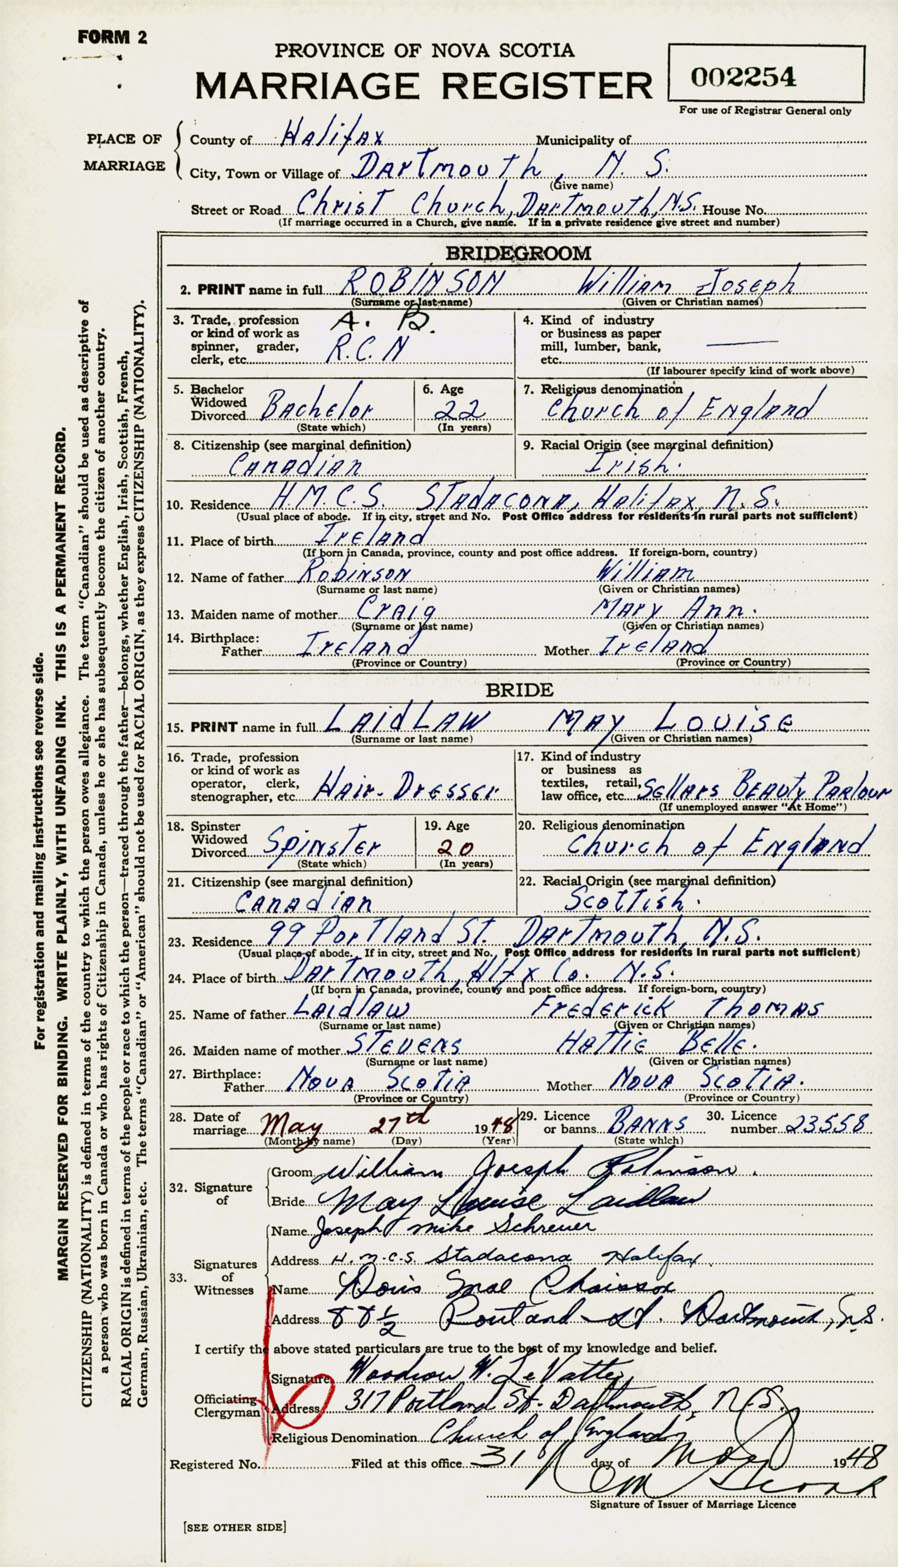 FORM 2
PROVINCE OF NOVA SCOTIA
MARRIAGE REGISTER
002254
For use of Registrar General only
PLACE OF MARRIAGE
County of Halifax Municipality of
City, Town or Village of Dartmouth, N. S.
(Give name)
Street or Road Christ Church, Dartmouth, N.S. House No.
(If marriage occurred in a Church, give name. If in a private residence give street and number)
BRIDEGROOM
2. PRINT name in full ROBINSON William Joseph
(Surname or last name) (Given or Christian names)
3. Trade, profession or kind of work as spinner, grader, clerk, etc. A. B. R.C.N
4. Kind of industry or business as paper mill, lumber, bank, etc. —
(If labourer specify kind of work above)
5. Bachelor Widowed Divorced Bachelor
(State which)
6. Age 22
(In years)
7. Religious denomination Church of England
8. Citizenship (see marginal definition) Canadian
9. Racial Origin (see marginal definition) Irish.
10. Residence H.M.C.S. Stadacona, Halifax, N.S.
(Usual place of abode. If in city, street and No. Post Office address for residents in rural parts not sufficient)
11. Place of birth Ireland
(If born in Canada, province, county and post office address. If foreign-born, country)
12. Name of father Robinson William
(Surname or last name) (Given or Christian names)
13. Maiden name of mother Craig Mary Ann.
(Surname or last name) (Given or Christian names)
14. Birthplace:
Father Ireland Mother Ireland
(Province or Country) (Province or Country)
BRIDE
15. PRINT name in full LAIDLAW MAY LOUISE
(Surname or last name) (Given or Christian names)
16. Trade, profession or kind of work as operator, clerk, stenographer, etc. Hair-Dresser
17. Kind of industry or business as textiles, retail, law office, etc. Sellars Beauty Parlour
(If unemployed answer "At Home")
18. Spinster Widowed Divorced Spinster
(State which)
19. Age 20
(In years)
20. Religious denomination Church of England
21. Citizenship (see marginal definition) Canadian
22. Racial Origin (see marginal definition) Scottish.
23. Residence 99 Portland St. Dartmouth, N.S.
(Usual place of abode. If in city, street and No. Post Office address for residents in rural parts not sufficient)
24. Place of birth Dartmouth, Hlfx Co. N.S.
(If born in Canada, province, county and post office address. If foreign-born, country)
25. Name of father Laidlaw Frederick Thomas
(Surname or last name) (Given or Christian names)
26. Maiden name of mother Stevens Hattie Belle.
(Surname or last name) (Given or Christian names)
27. Birthplace:
Father Nova Scotia Mother Nova Scotia.
(Province or Country) (Province or Country)
28. Date of marriage May 27th 1948
(Month by name) (Day) (Year)
29. Licence or banns Banns
(State which)
30. Licence number 23558
32. Signature of
Groom William Joseph Robinson.
Bride May Louise Laidlaw
33. Signatures of Witnesses
Name Joseph Mike Schreuer
Address H.M.C.S. Stadacona Halifax
Name Doris Mae Chaisson
Address 88 1/2 Portland St. Dartmouth, N.S.
I certify the above stated particulars are true to the best of my knowledge and belief.
Officiating Clergyman
Signature Woodrow W. LeVatte
Address 317 Portland St. Dartmouth, N.S.
Religious Denomination Church of England
Registered No. Filed at this office 31 day of May 1948
Signature of Issuer of Marriage Licence
[SEE OTHER SIDE]
For registration and mailing instructions see reverse side.
MARGIN RESERVED FOR BINDING. WRITE PLAINLY, WITH UNFADING INK. THIS IS A PERMANENT RECORD.
CITIZENSHIP (NATIONALITY) is defined in terms of the country to which the person owes allegiance. The term "Canadian" should be used as descriptive of
a person who was born in Canada or who has rights of Citizenship in Canada, unless he or she has subsequently become the citizen of another country.
RACIAL ORIGIN is defined in terms of the people or race to which the person—traced through the father—belongs, whether English, Irish, Scottish, French,
German, Russian, Ukrainian, etc. The terms "Canadian" or "American" should not be used for RACIAL ORIGIN, as they express CITIZENSHIP (NATIONALITY).